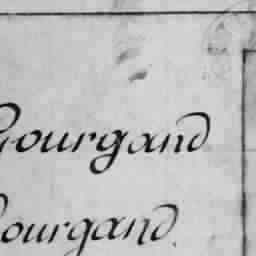 Gourgand
Gourgand.